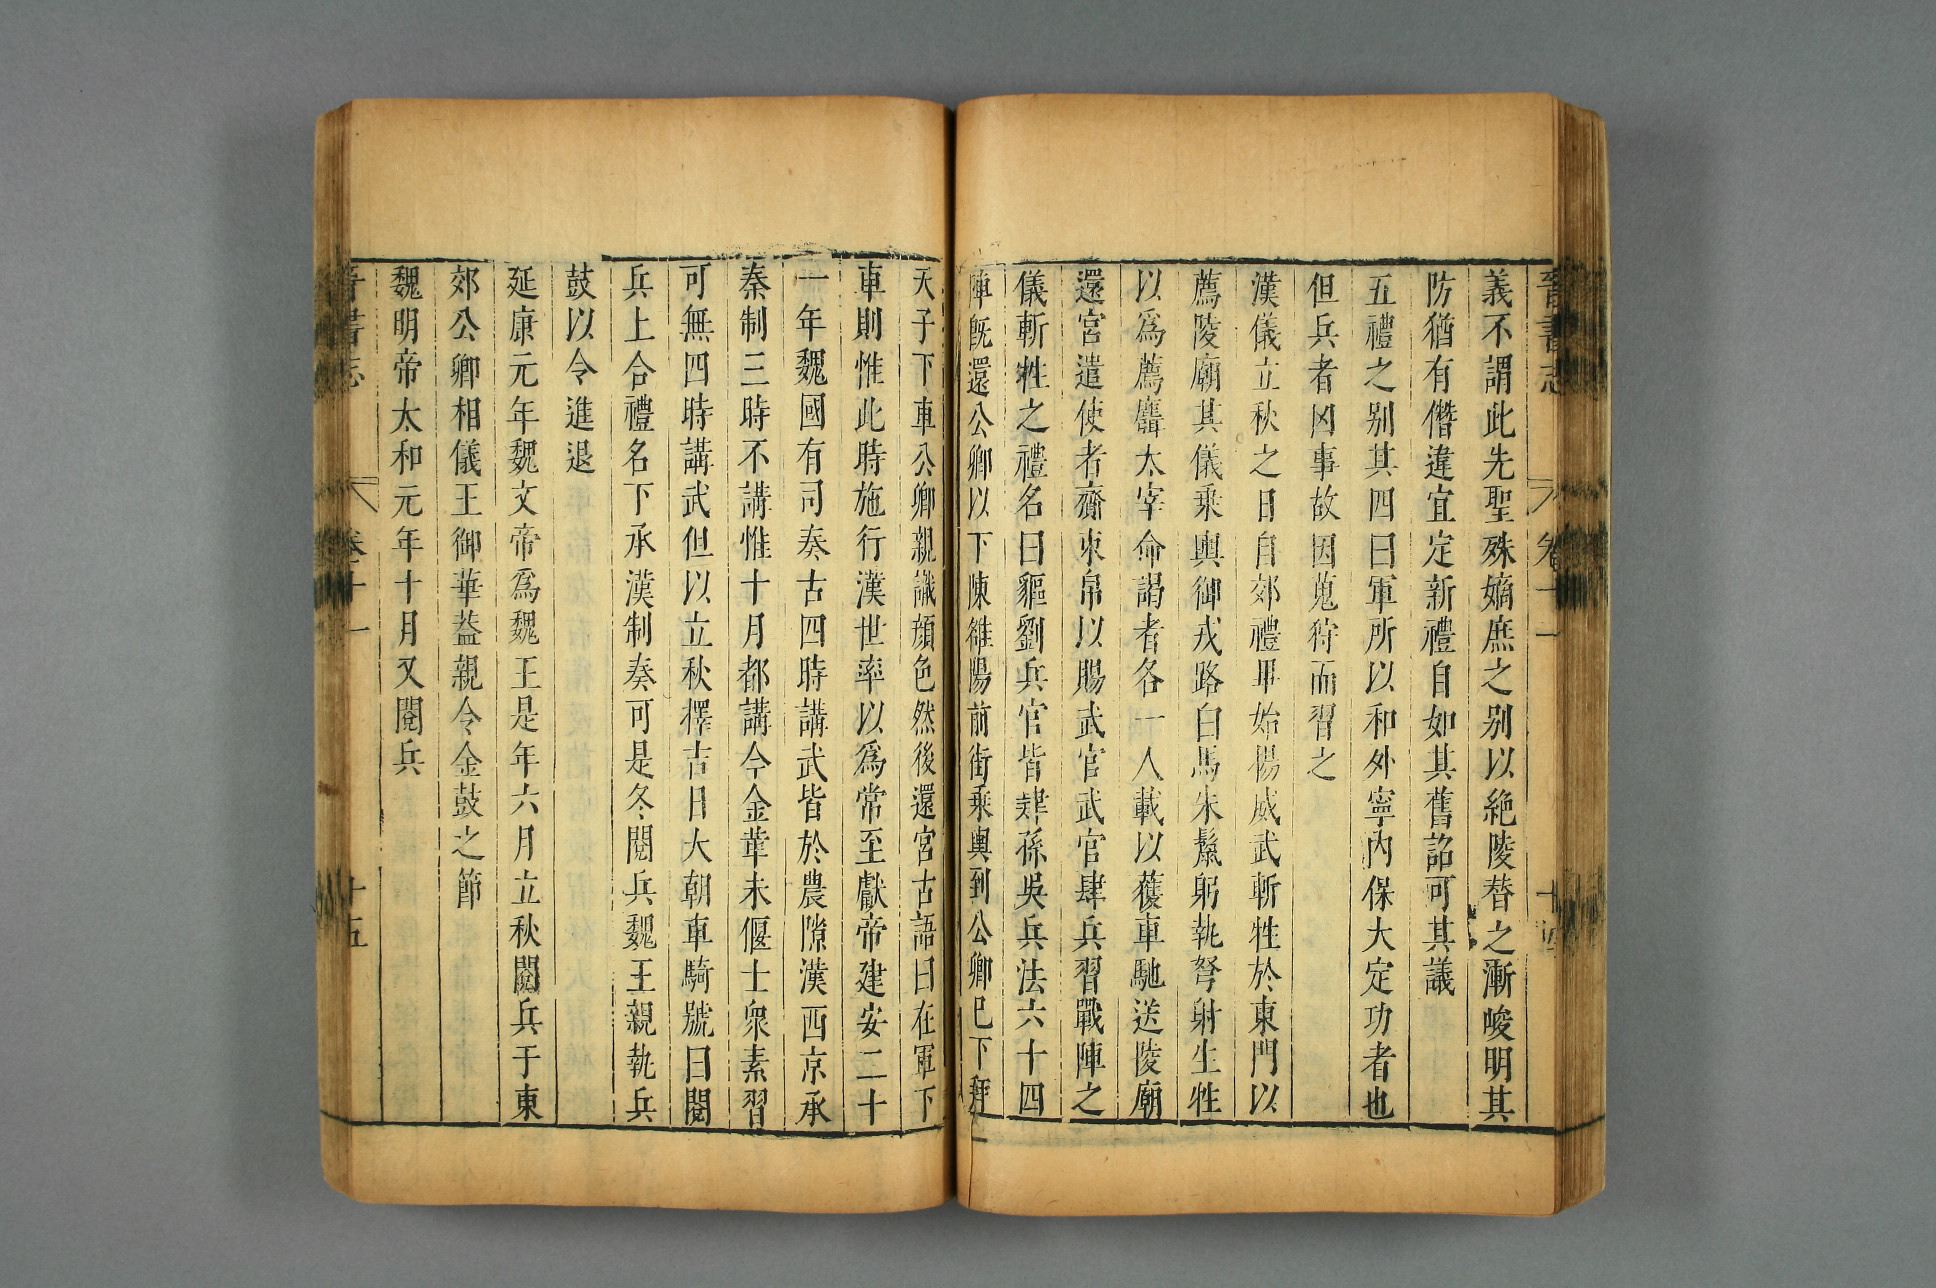 晉書志 卷十一 十四
義不謂此先聖殊嫡庶之别以絶陵替之漸峻明其
防猶有僭違宜定新禮自如其舊詔可其議
五禮之别其四曰軍所以和外寧内保大定功者也
但兵者凶事故因蒐狩而習之
漢儀立秋之日自郊禮畢始揚威武斬牲於東門以
薦陵廟其儀乘輿御戎路白馬朱鬣躬執弩射生牲
以爲薦麛太宰命謁者各一人載以獲車馳送陵廟
還宮遣使者齎束帛以賜武官武官肆兵習戰陣之
儀斬牲之禮名曰貙劉兵官皆肄孫吳兵法六十四
陣既還公卿以下陳雒陽前街乘輿到公卿巳下拜
天子下車公卿親識顔色然後還宮古語曰在軍下
車則惟此時施行漢世率以爲常至獻帝建安二十
一年魏國有司奏古四時講武皆於農隙漢西京承
秦制三時不講惟十月都講今金革未偃士衆素習
可無四時講武但以立秋擇吉日大朝車騎號曰閱
兵上合禮名下承漢制奏可是冬閱兵魏王親執兵
鼓以令進退
延康元年魏文帝爲魏王是年六月立秋閱兵于東
郊公卿相儀王御華葢親令金鼓之節
魏明帝太和元年十月又閱兵
晉書志 卷十一 十五